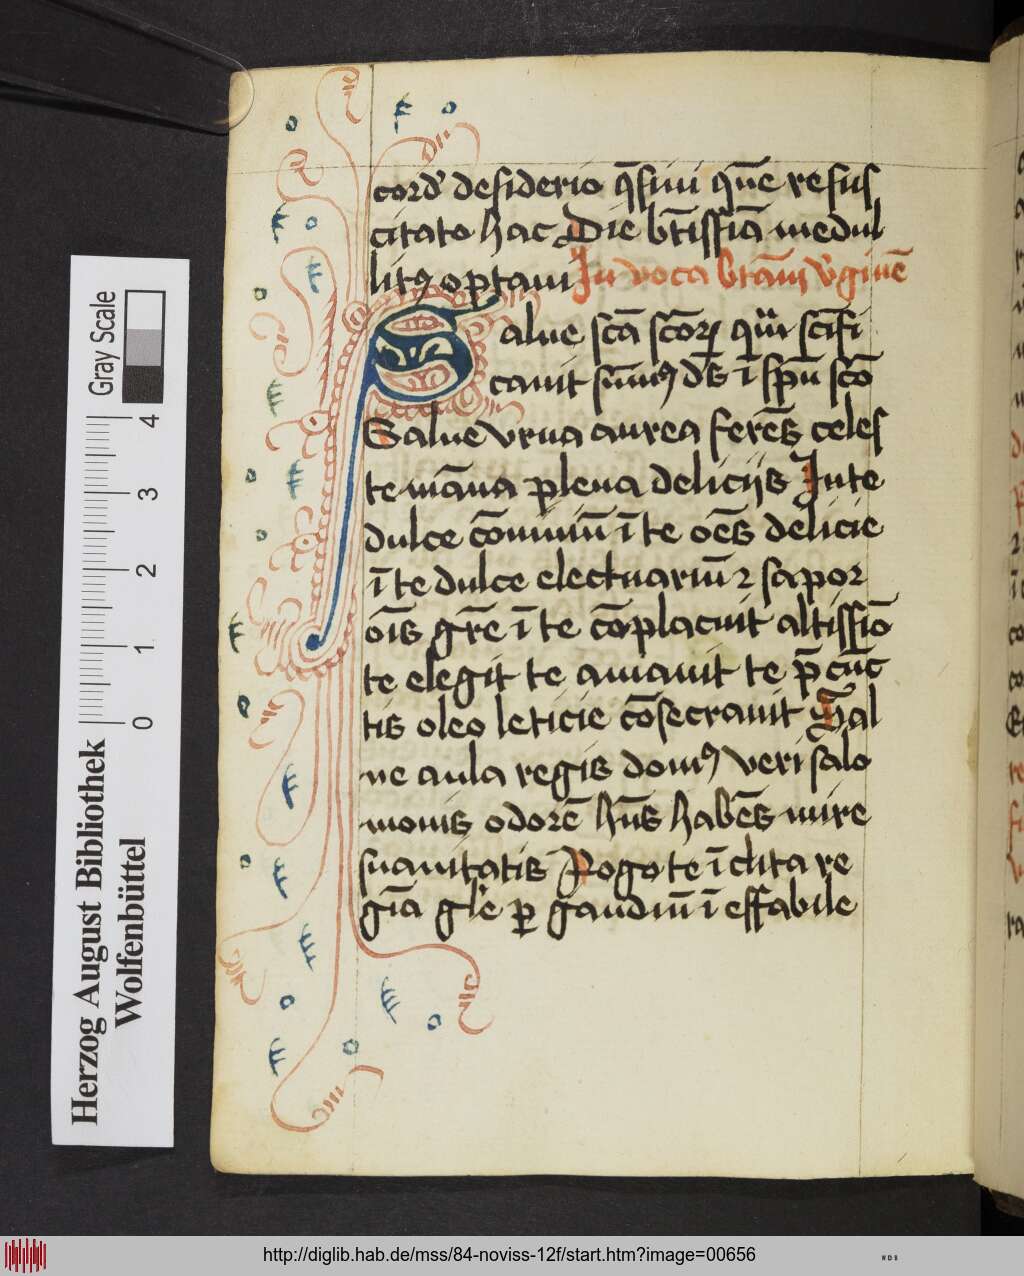 cord' desiderio q̄siui quē resus
citato hac Die bt̄issiā medul
litꝰ optaui In voca btām v'ginē
Salue sc̄a sc̄oꝝ quā sc̄ifi
cauit su̅mꝰ de̅s ī sp̅u sc̅o
Salue vrna aurea fere̅s celes
te ma̅na plena deliciis In te
dulce co̅uiuiu̅ i̅ te oe̅s delicie
i̅ te dulce electuariu̅ ⁊ sapor
oi̅s gr̅e i̅ te co̅placuit altissi̅o
te elegit te amauit te p̅ cu̅c
tis oleo leticie co̅secrauit Sal
ue aula regis domꝰ veri salo
monis odore̅ hn̅s habe̅s mire
suauitatis Rogo te i̅clita re
gi̅a gl'e ꝑ gaudiu̅ i̅effabile
Gray Scale
4
3
2
1
0
Herzog August Bibliothek
Wolfenbüttel
http://diglib.hab.de/mss/84-noviss-12f/start.htm?image=00656